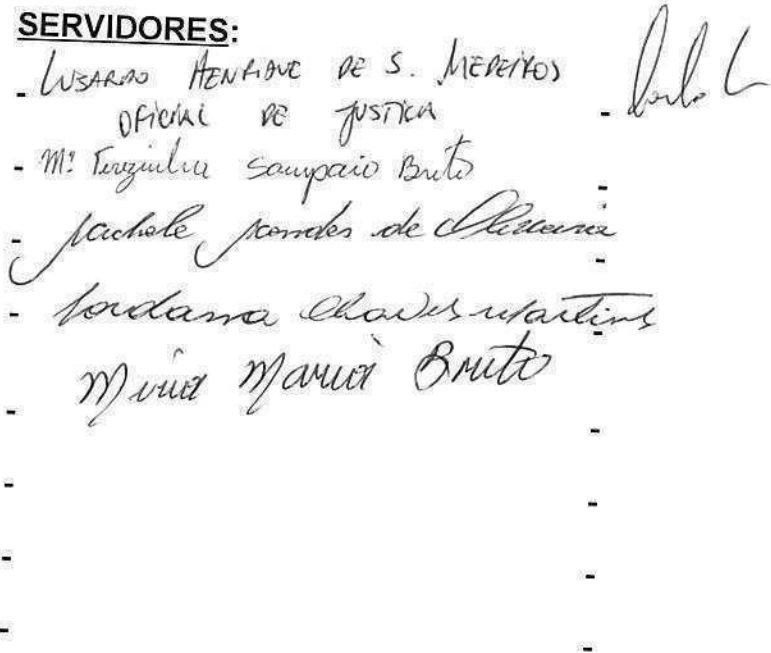 SERVIDORES:
- LUSARDO HENRIQUE DE S. MEDEIROS
OFICIAL DE JUSTIÇA -
- Mª Terezinha Sampaio Brito -
- de Oliveira -
- Jordanna Chaves Martins -
Maria Brito
- -
- -
- -
- -